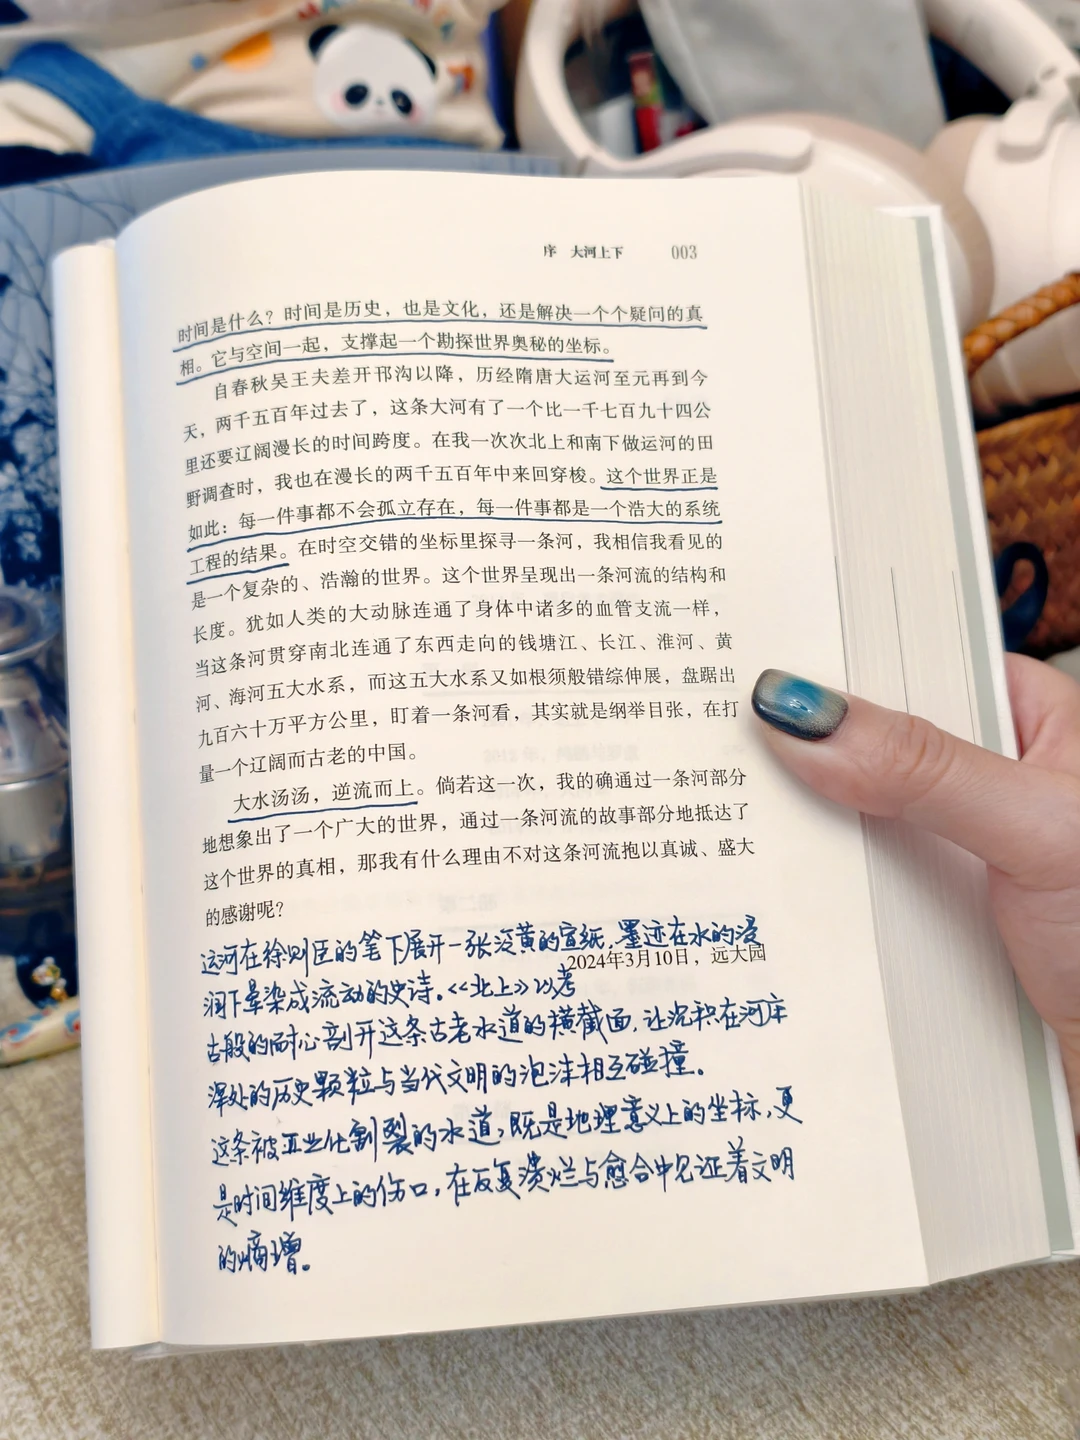 序 大河上下 003
时间是什么？时间是历史，也是文化，还是解决一个个疑问的真
相。它与空间一起，支撑起一个勘探世界奥秘的坐标。
自春秋吴王夫差开邗沟以降，历经隋唐大运河至元再到今
天，两千五百年过去了，这条大河有了一个比一千七百九十四公
里还要辽阔漫长的时间跨度。在我一次次北上和南下做运河的田
野调查时，我也在漫长的两千五百年中来回穿梭。这个世界正是
如此：每一件事都不会孤立存在，每一件事都是一个浩大的系统
工程的结果。在时空交错的坐标里探寻一条河，我相信我看见的
是一个复杂的、浩瀚的世界。这个世界呈现出一条河流的结构和
长度。犹如人类的大动脉连通了身体中诸多的血管支流一样，
当这条河贯穿南北连通了东西走向的钱塘江、长江、淮河、黄
河、海河五大水系，而这五大水系又如根须般错综伸展，盘踞出
九百六十万平方公里，盯着一条河看，其实就是纲举目张，在打
量一个辽阔而古老的中国。
大水汤汤，逆流而上。倘若这一次，我的确通过一条河部分
地想象出了一个广大的世界，通过一条河流的故事部分地抵达了
这个世界的真相，那我有什么理由不对这条河流抱以真诚、盛大
的感谢呢？
运河在徐则臣的笔下展开一张泛黄的宣纸，墨迹在水的浸
2024年3月10日，远大园
润下晕染成流动的史诗。《北上》以考
古般的耐心剖开这条古老水道的横截面，让沉积在河床
深处的历史颗粒与当代文明的泡沫相互碰撞。
这条被工业化割裂的水道，既是地理意义上的坐标，更
是时间维度上的伤口，在反复溃烂与愈合中见证着文明
的熵增。